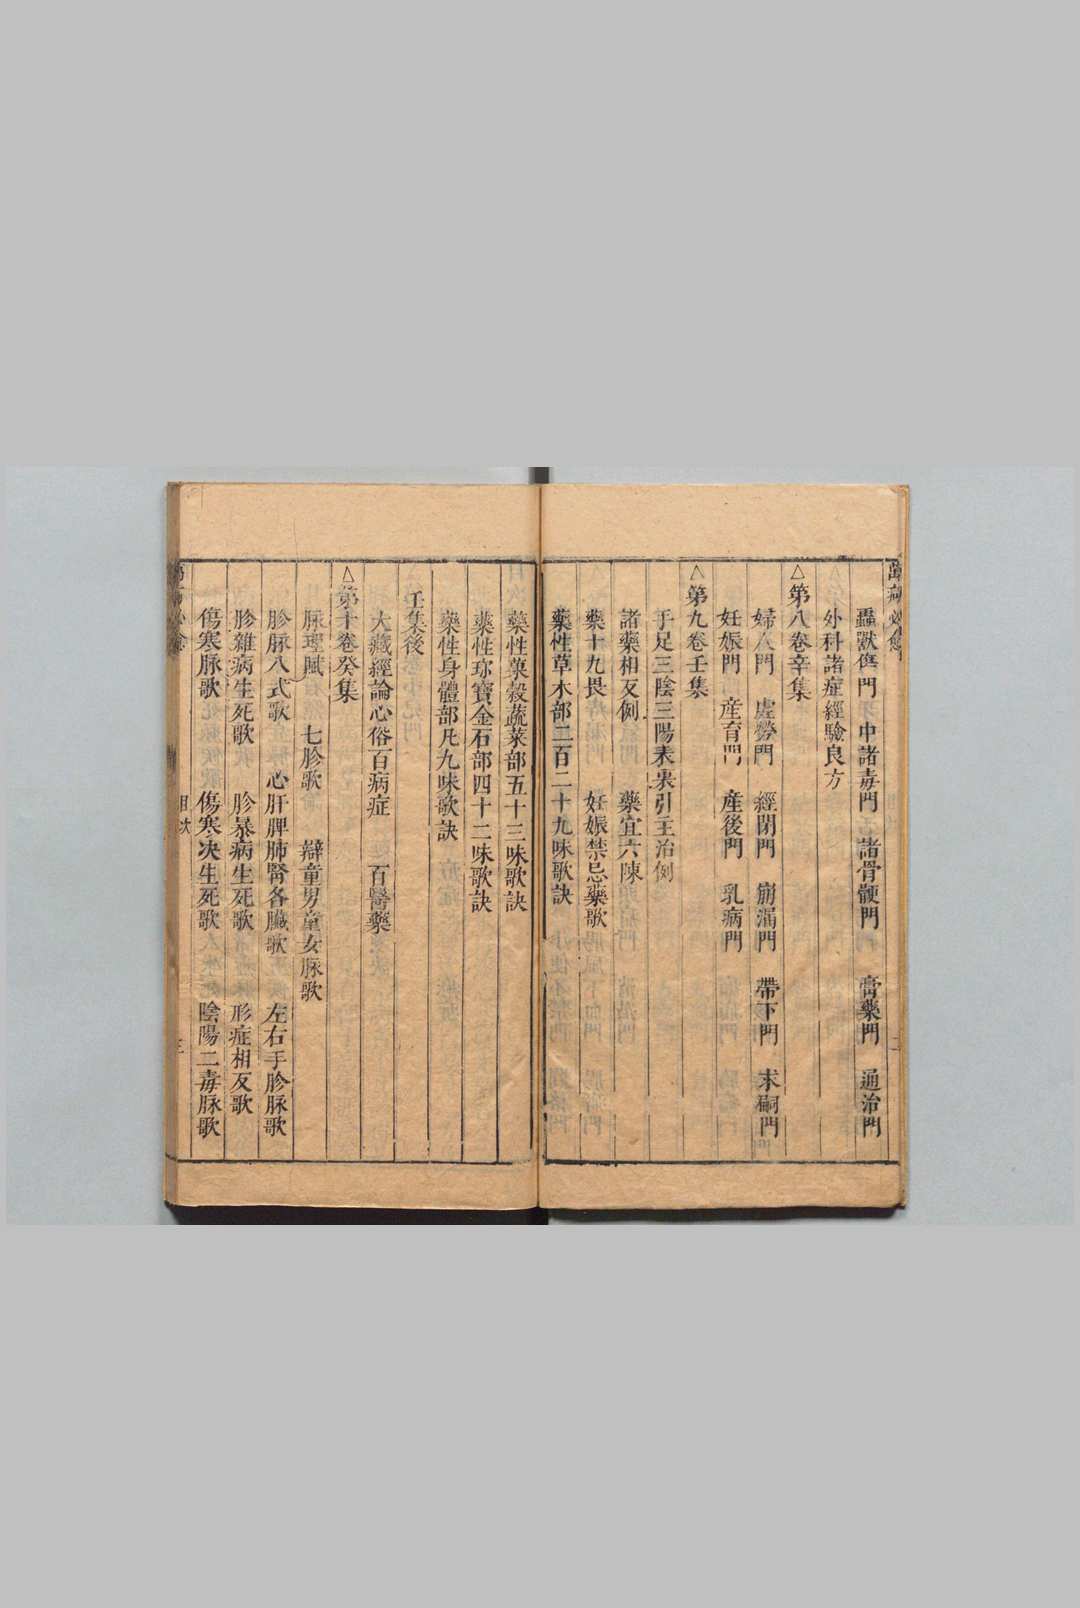 蟲獸傷門　中諸毒門　諸骨骾門　膏藥門　通治門
外科諸症經驗良方
△第八卷辛集
婦人門　虛勞門　經閉門　崩漏門　帶下門　求嗣門
妊娠門　産育門　産後門　乳病門
△第九卷壬集
手足三陰三陽表裏引主治例
諸藥相反例　藥宜六陳
藥十九畏　妊娠禁忌藥歌
藥性草木部二百二十九味歌訣
藥性菓穀蔬菜部五十三味歌訣
藥性珎寶金石部四十二味歌訣
藥性身體部凡九味歌訣
壬集後
大藏經論心俗百病症　百醫藥
△第十卷癸集
脉理賦　七胗歌　辯童男童女脉歌
胗脉八式歌　心肝脾肺腎各臟歌　左右手胗脉歌
胗雜病生死歌　胗暴病生死歌　形症相反歌
傷寒脉歌　傷寒决生死歌　陰陽二毒脉歌
目次　三